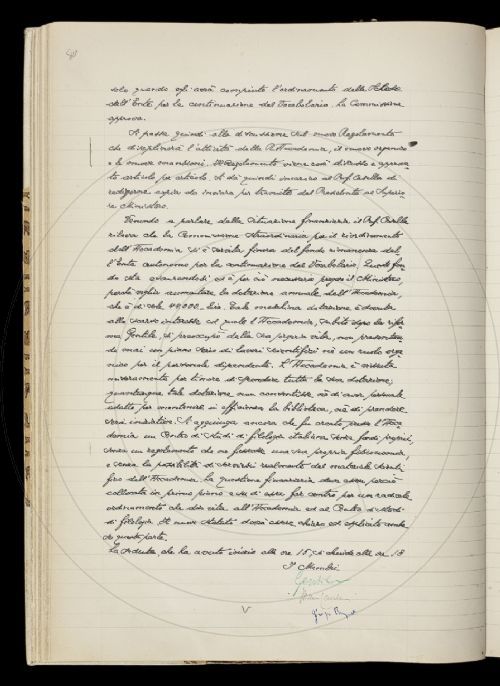 solo quando egli avrà compiuto l'ordinamento delle Schede
dell'Ente per la continuazione del Vocabolario. La Commissione
approva.
Si passa quindi alla discussione del nuovo Regolamento
che disciplinerà l'attività della R. Accademia, il nuovo organico
e le nuove mansioni. Il Regolamento viene così discusso e approva-
to articolo per articolo. Si dà quindi incarico al Prof. Casella di
redigerne copia da inviare per tramite del Presidente al Superio-
re Ministero.
Venendo a parlare della situazione finanziaria il Prof. Casella
rileva che la Commissione Straordinaria per il riordinamento
dell'Accademia si è servita finora del fondo rimanenza del-
l'Ente autonomo per la continuazione del Vocabolario. Questo fon-
do sta esaurendosi ed è per ciò necessario pregare il Ministero,
perché voglia aumentare la dotazione annuale dell'Accademia,
che è di sole 40.000 lire. Tale meschina dotazione è dovuta
allo scarso interesse col quale l'Accademia, subito dopo la rifor-
ma Gentile, si preoccupò della sua propria vita, non presentan-
do mai un piano serio di lavori scientifici né un ruolo orga-
nico per il personale dipendente. L'Accademia è vissuta
miseramente per timore di spendere tutta la sua dotazione,
quantunque tale dotazione non consentisse né di avere personale
adatto per mantenere in efficienza la biblioteca, né di prendere
serie iniziative. Si aggiunga ancora che fu creato presso l'Acca-
demia un Centro di Studi di filologia italiana senza fondi propri,
senza un regolamento che ne facesse una sua propria fisionomia,
e senza la possibilità di servirsi realmente del materiale scienti-
fico dell'Accademia. La questione finanziaria deve essere perciò
collocata in primo piano e su di essa far centro per un radicale
ordinamento che dia vita all'Accademia ed al Centro di studi
di filologia. Il nuovo statuto dovrà essere chiaro ed esplicito anche
da questa parte.
La seduta, che ha avuto inizio alle ore 15, si chiude alle ore 18
I Membri
Gentile